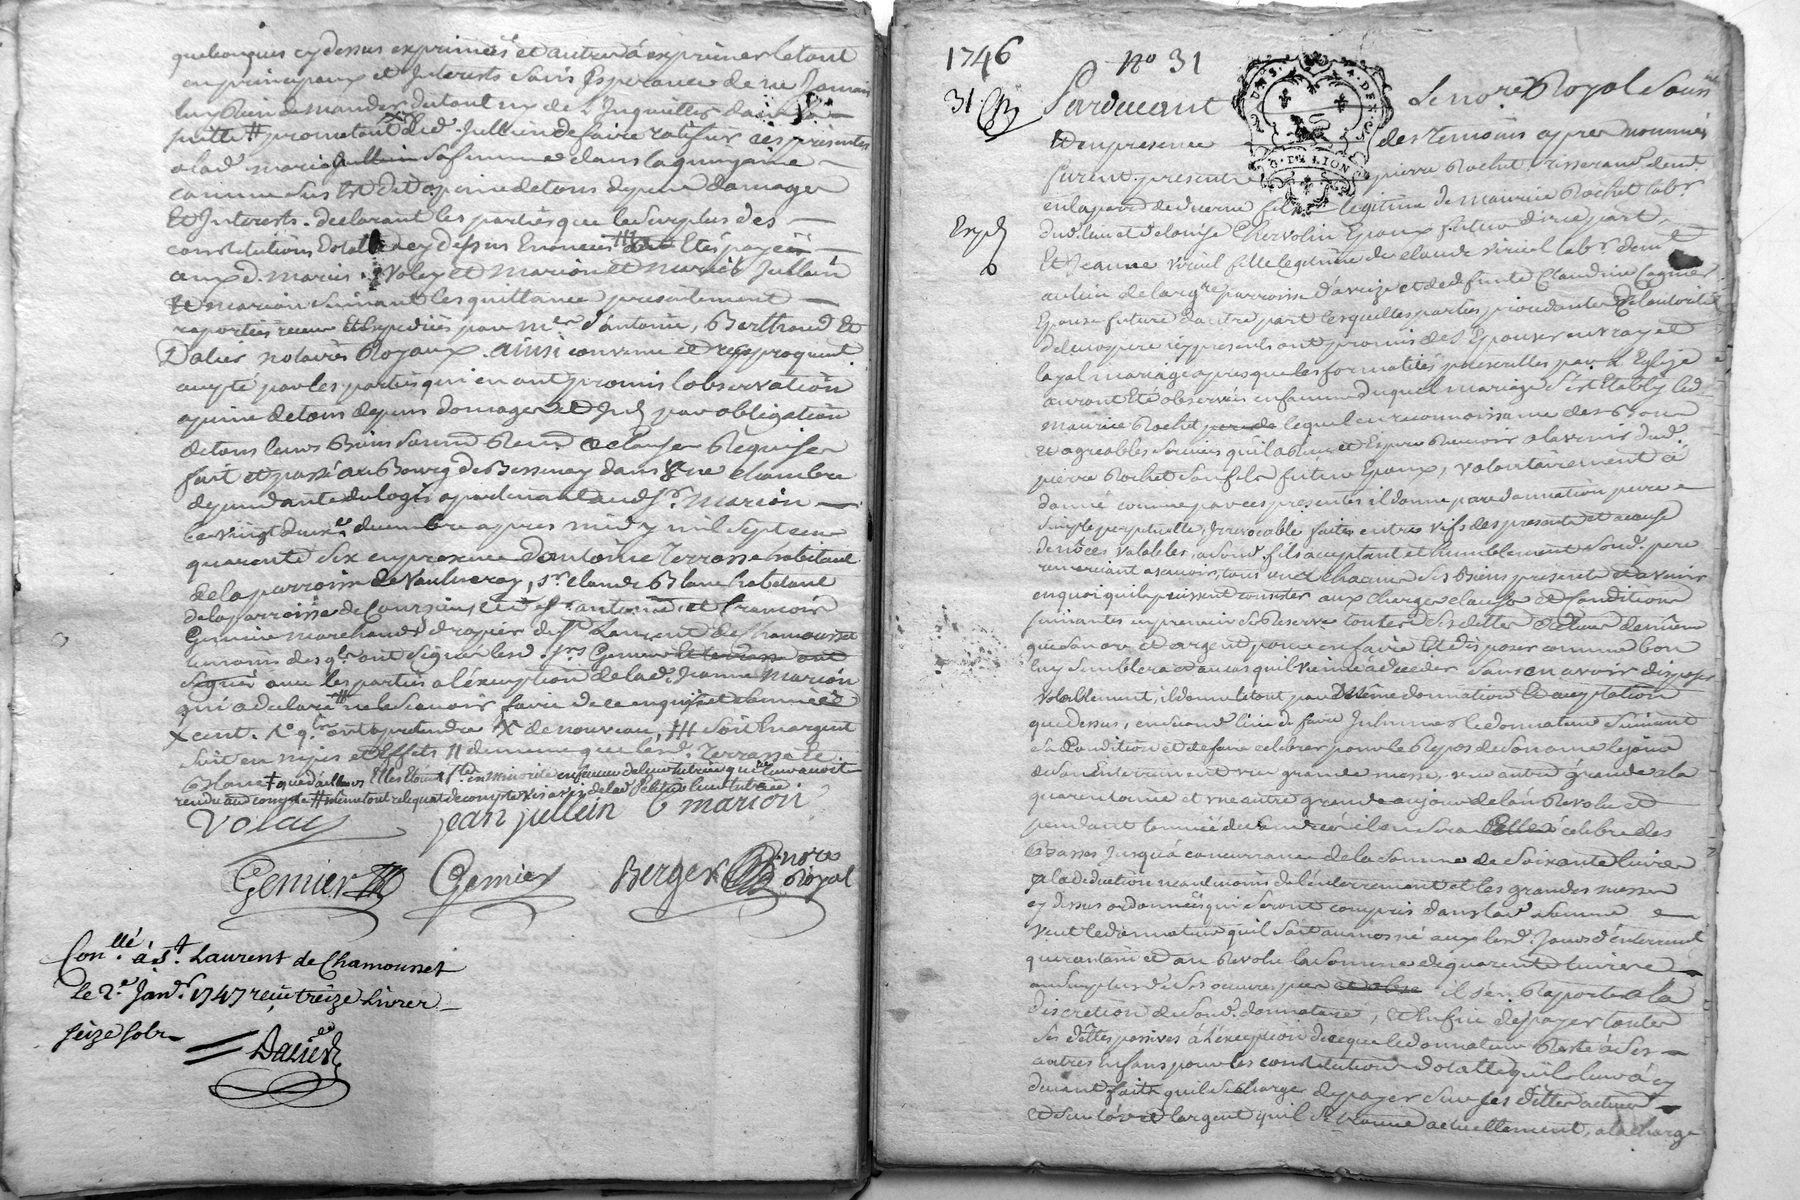 quelconques cy dessus exprimées et autres à exprimer le tout
en principaux et Interests sans Esperance de ne Jamais
luy Rien demander du tout
promettant led. Jullien de faire ratifier ces presentes
a lad. marie Jullien sa femme dans la quinzaine
comme sus Est dit a peine de tous depens domages
Et Interests. declarant les parties que le surplus des
constitutions dotalles cy dessus Enoncées Etés payés
aux d. maries Volay et marion et maries Jullien
Et marion suivant les quittances presentement
raportées receues Et Expediées par mes. d'antoine, Berthaud Et
Dalier notaires Royaux. ainsi convenu et reciproquemt.
accepté par les parties qui en ont promis l'observation
a peine de tous depens domages et Int. par obligation
de tous leurs Biens soum. Renon. & clauses Requises
fait et passé au Bourg de Bessenay dans une chambre
dependante du logis apartenant aud. sr. marion
ce vingt deuxe. decembre apres midy mil sept cens
quarante six en presence d'antoine Terrasse habitant
de la parroisse de Vaulneray, sr. claude Blanc habitant
de la parroisse de Courzieu, et srs. antoine et francois
Gemier marchands drapiers de St. Laurent de Chamousset
temoins desqls. ont signé lesd. srs. Gemier et terrasse ont
signés avec les parties a l'exception de lad. Jeanne marion
qui a declaré ne le scavoir faire de ce enquise et sommée
X cent. X de nouveau, # soit en argent
soit en nipes et Effets # de meme que lesd. Terrasse Et
Blanc
Volay jean jullein C marion
Gemier Gemier Berger nore Royal
Conllé. à St. Laurent de Chamousset
le 2e. Janvr. 1747 reçu treize Livres
seize sols
Dalier
1746 no 31
31 Pardevant Le nore Royal Sous
Et en presence des Temoins apres nommés
furent presents pierre Rochet Tisserand demt.
en la parr. de duerne fils legitime de maurice Rochet labr.
dud. lieu et d'Eloise Chervolin Epoux futur d'une part
Exp
Et Jeanne Viricel fille legitime de claude viricel labr. demt.
au lieu de largre. parroisse d'aveize et de deffunte Claudine Cagnier
Epouse future d'autre part lesquelles parties procedantes de l'autorité
de leurs peres icy presents ont promis de s'Epouser en vray et
loyal mariage apres que les formalités prescrittes par l'Eglise
auront Eté observées en faveur duquel mariage s'est Etably led.
maurice Rochet lequel en reconnoissance des Bons
et agreables services qu'il a reçu et Espere Recevoir a l'avenir dud.
pierre Rochet son fils futur Epoux, volontairement a
donné comme par ces presentes il donne par donnation pure
simple perpetuelle, Irrevocable faite entre vifs des presents et a cause
de nôces valables, a sond. fils acceptant et humblement sond. pere
remerciant a scavoir, tous une chacuns ses Biens presents et avenir
en quoi qu'ils puissent consister aux charges clauses et Conditions
suivantes en premier se Reserve toutes ses dettes actives de meme
que son or et argent pour en faire Et disposer comme bon
luy semblera et au cas qu'il vienne a deceder sans en avoir disposer
valablement, il donne le tout par Meme donnation Et acceptation
que dessus, en second lieu de faire Inhumer le donnateur suivant
sa Condition et de faire celebrer pour le Repos de son ame le jour
de son Enterrement une grande messe, une autre grande a la
quarantaine et une autre grande au jour de l'an Revolu et
pendant l'année du sond. decés il en sera celebré des
Basses Jusqu'a concurrance de la somme de soixante livres
a la deduction neantmoins de l'enterrement et les grandes messes
cy dessus ordonnées qui seront compris dans lad. somme
veut le donnateur qu'il soit aumosné aux lesd. Jours d'enterremt.
quarantaine et an Revolu la somme de quarante livres
au surplus de ses oeuvres pies il s'en Raporte a la
discretion de sond. donnataire, et Enfin de payer toutes
ses dettes passives à l'exception de ce que le donnateur Reste à ses
autres Enfans pour les constitutions dotalles qu'il leur a cy
devant faits qu'il se charge de payer sur ses dettes actives
et sur l'or et l'argent qu'il se donne actuellement, a la charge
G. DE LION